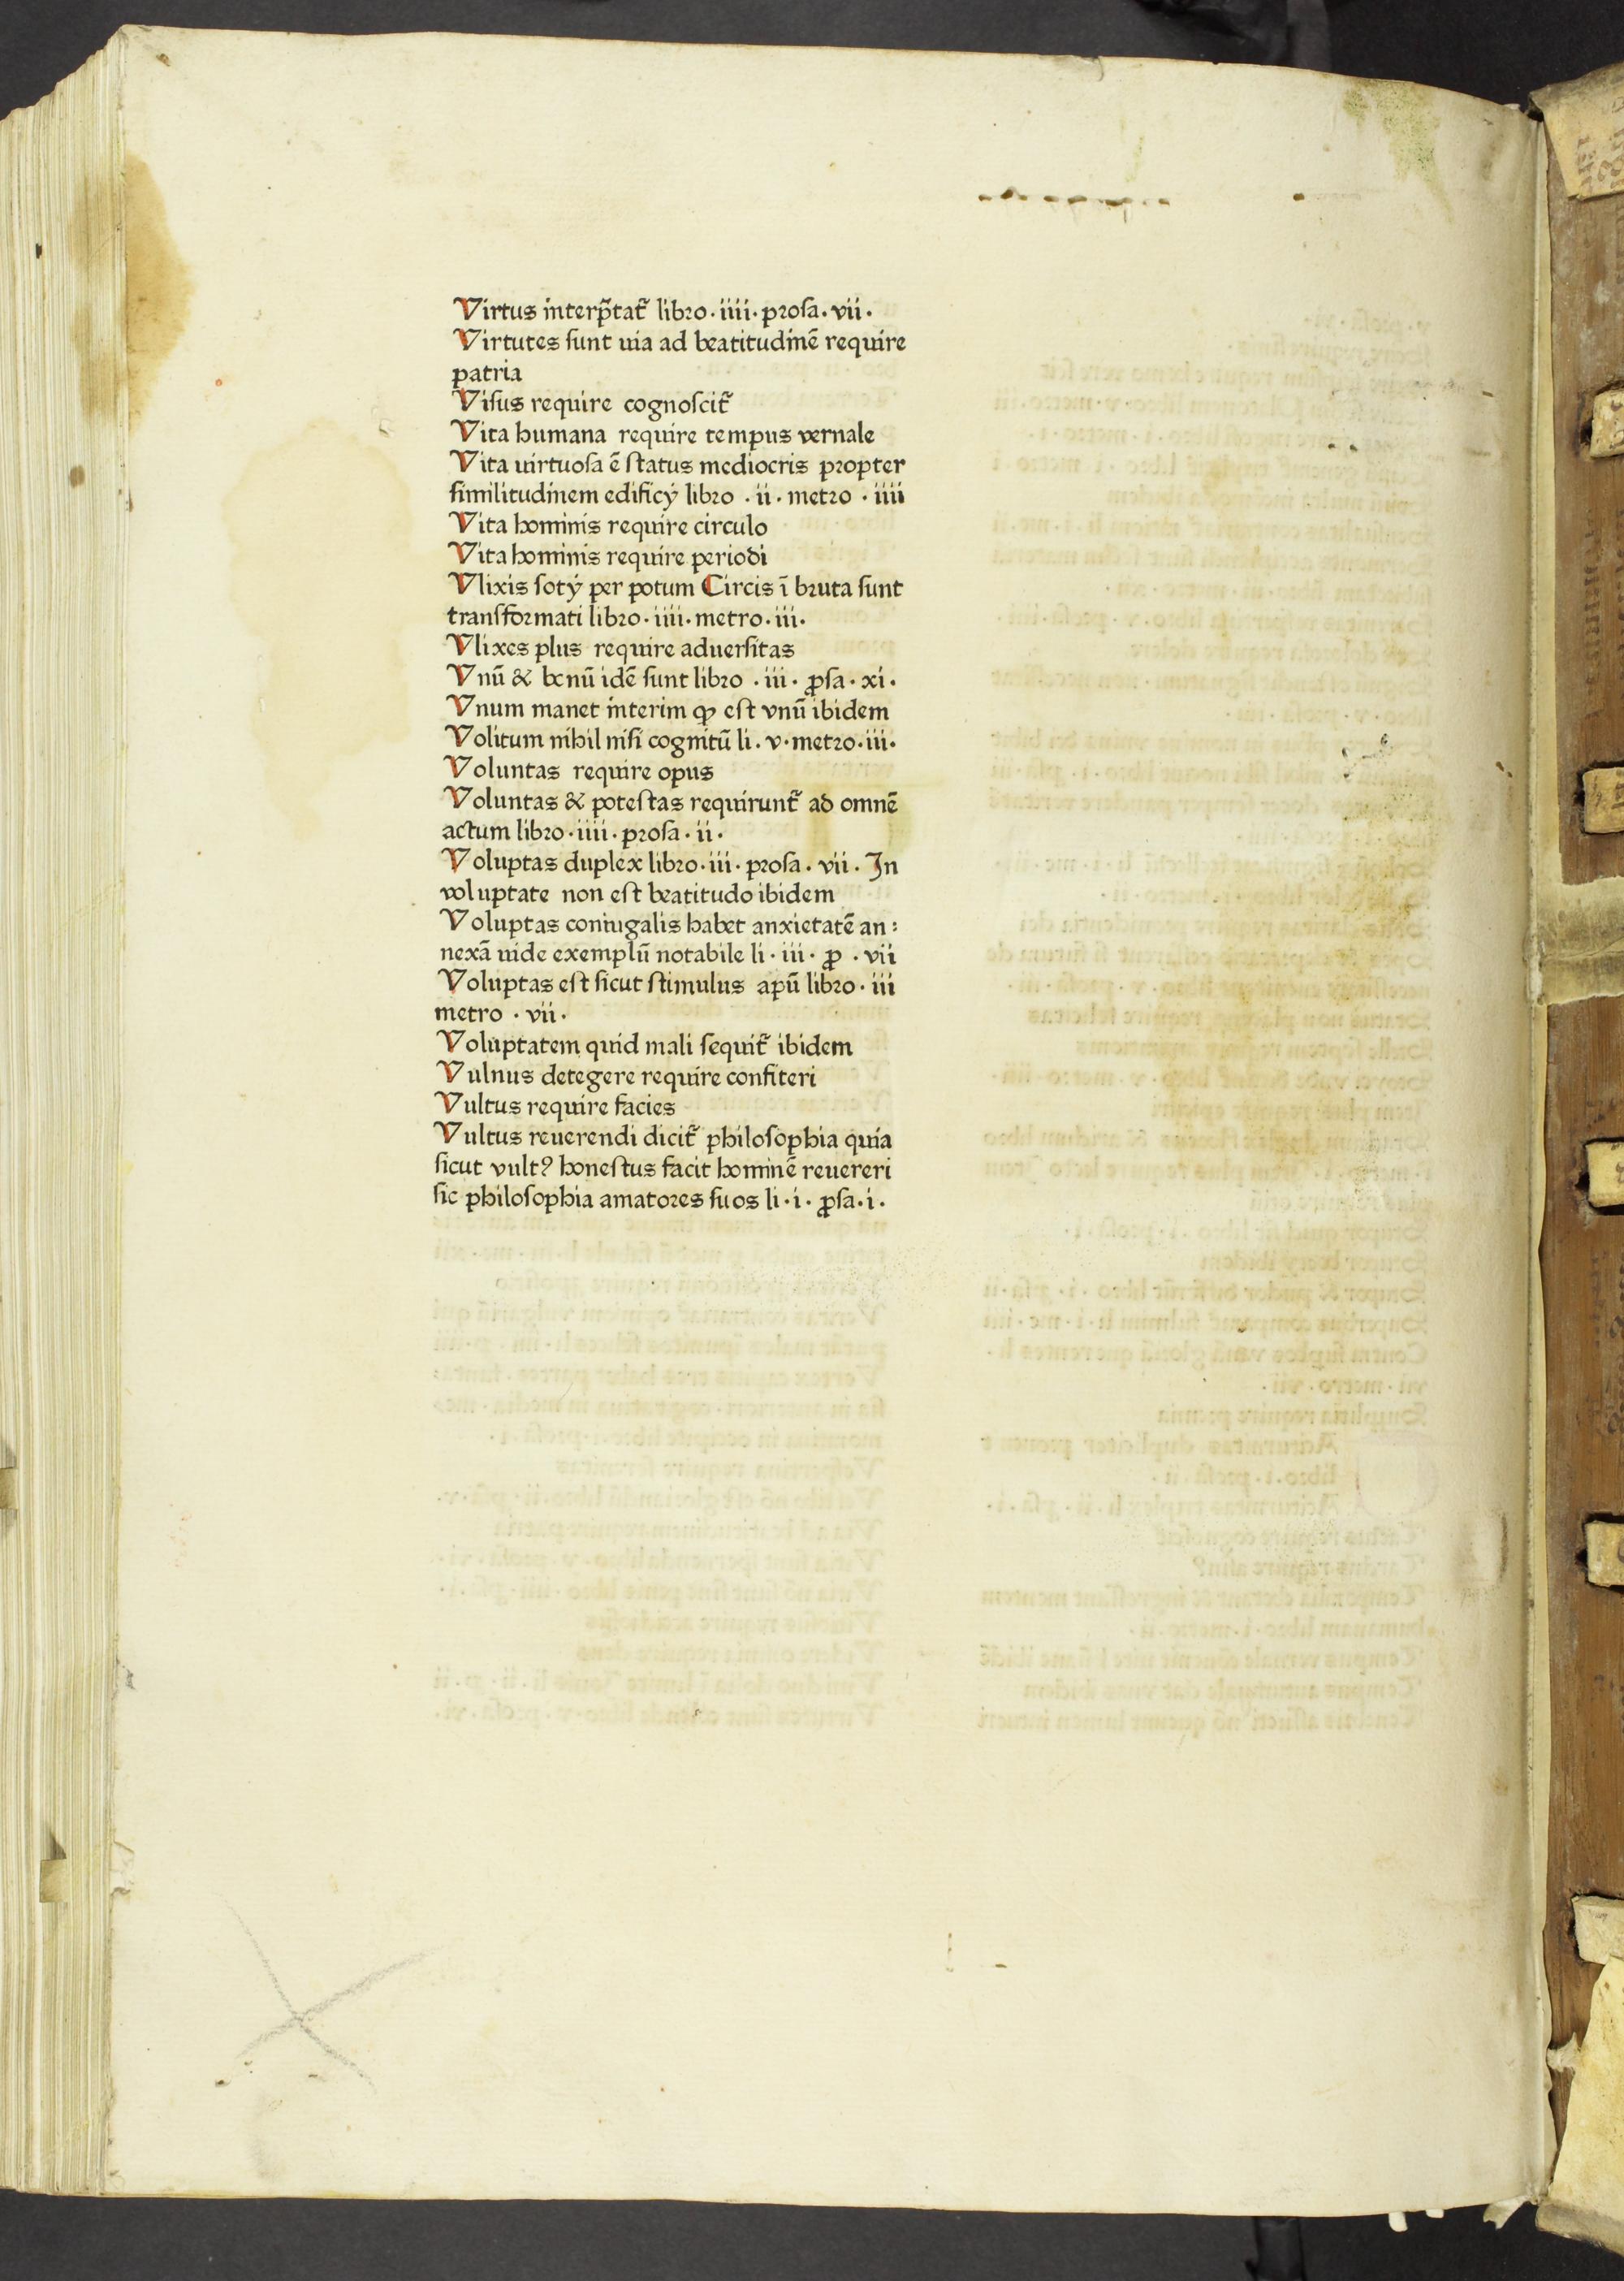 Virtus interp̃tat᷑ libro · iiii · prosa · vii ·
Virtutes sunt uia ad beatitudinē require
patria
Visus require cognoscit᷑
Vita humana require tempus vernale
Vita uirtuosa ē status mediocris propter
similitudinem edificÿ libro · ii · metro · iiii
Vita hominis require circulo
Vita hominis require periodi
Vlixis sotÿ per potum Circis ī bruta sunt
transformati libro · iiii · metro · iii ·
Vlixes plus require aduersitas
Vnū & bonū idē sunt libro · iii · ꝓsa · xi ·
Vnum manet interim ꝙ est vnū ibidem
Volitum nihil nisi cognitū li · v · metro · iii ·
Voluntas require opus
Voluntas & potestas requirunt᷑ ad omnē
actum libro · iiii · prosa · ii ·
Voluptas duplex libro · iii · prosa · vii · In
voluptate non est beatitudo ibidem
Voluptas coniugalis habet anxietatē an:
nexā uide exemplū notabile li · iii · ꝓ · vii
Voluptas est sicut stimulus apū libro · iii
metro · vii ·
Voluptatem quid mali sequit᷑ ibidem
Vulnus detegere require confiteri
Vultus require facies
Vultus reuerendi dicit᷑ philosophia quia
sicut vultꝰ honestus facit hominē reuereri
sic philosophia amatores suos li · i · ꝓsa · i ·